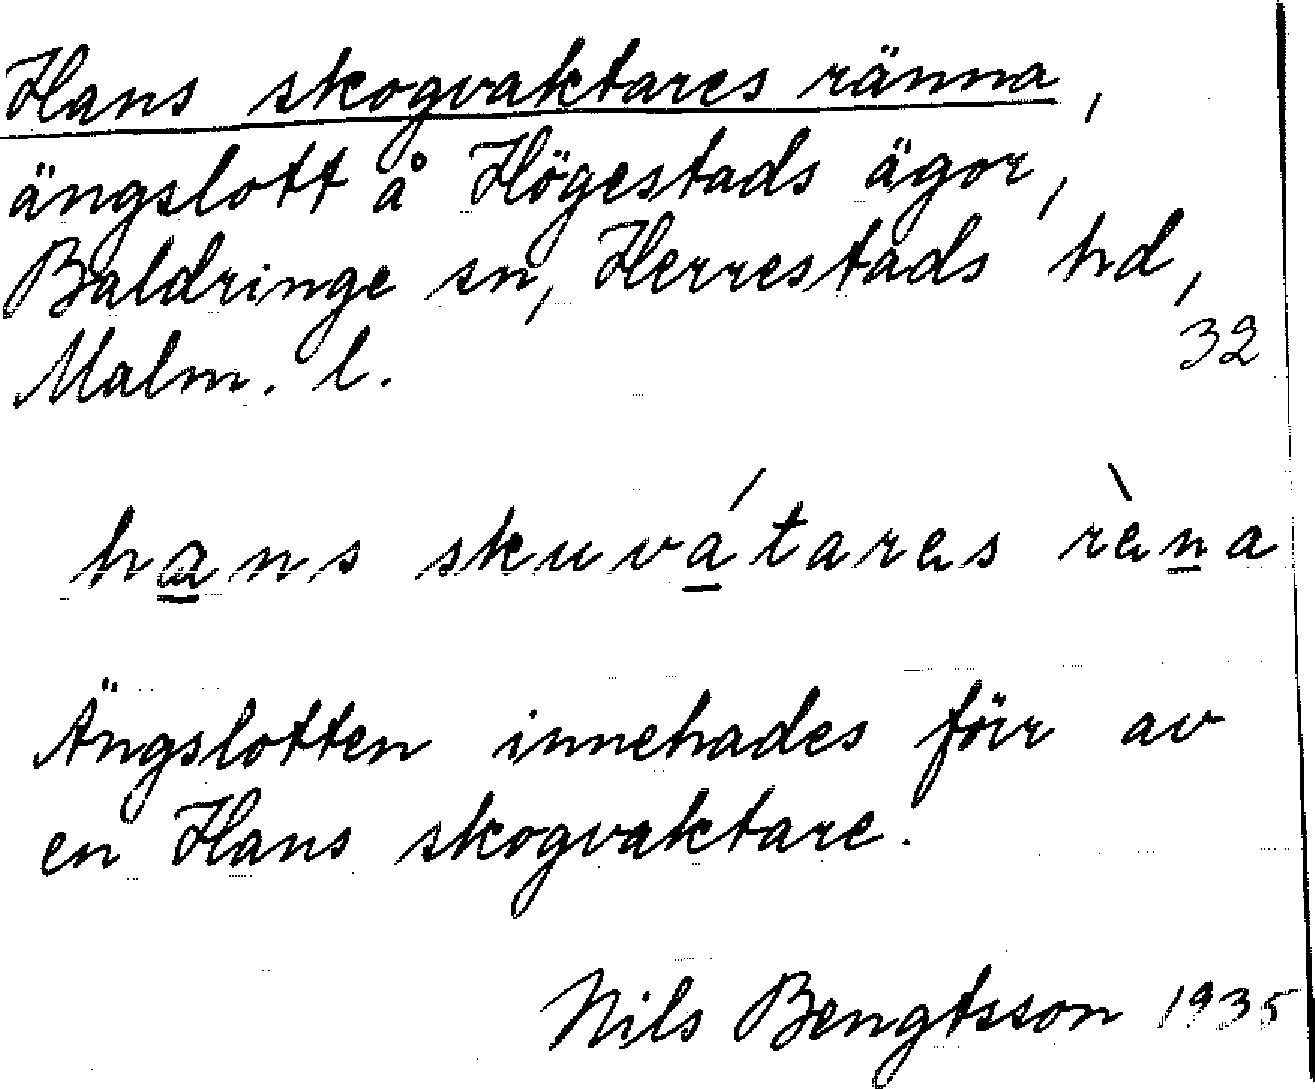 Hans skogvaktares ränna,
ängslott å Högestads ägor,
Baldringe sn, Herrestads hd,
Malm. l. 32
hans skuvátares rèna
Ängslotten innehades förr av
en Hans skogvaktare.
Nils Bengtsson 1935